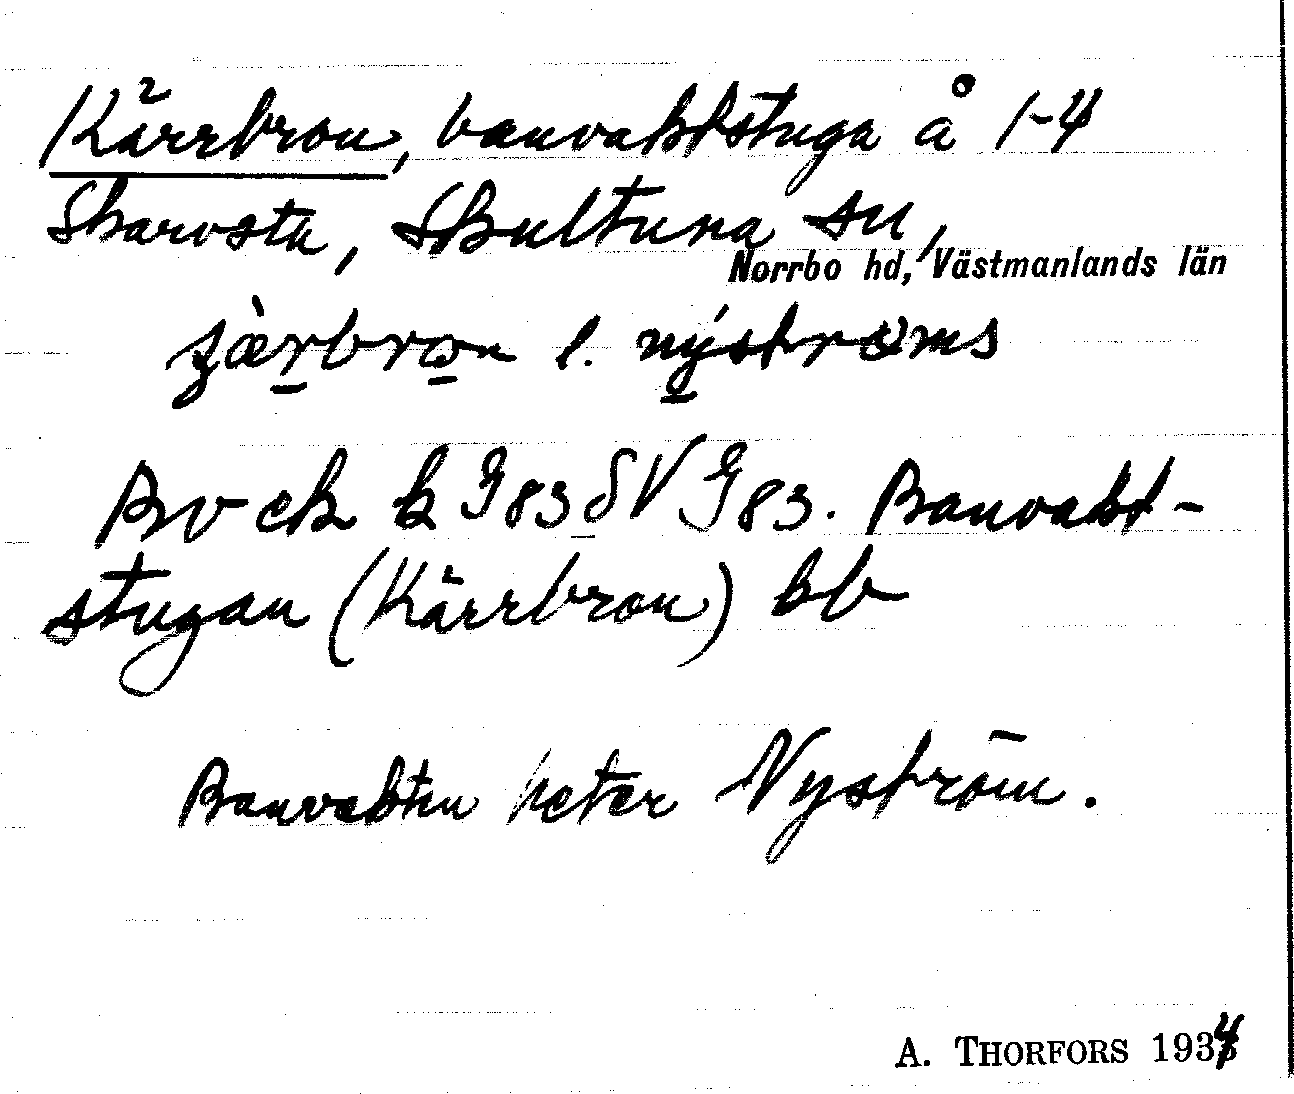 Kärrbron, banvaktstuga å 1-4
Skarvsta, Skultuna sn,
Norrbo hd, Västmanlands län
l. nýstrøms
Bv ek k G83 SV G83. Banvakt-
stugan (Kärrbron) kb
Banvakten heter Nyström.
A. THORFORS 1934